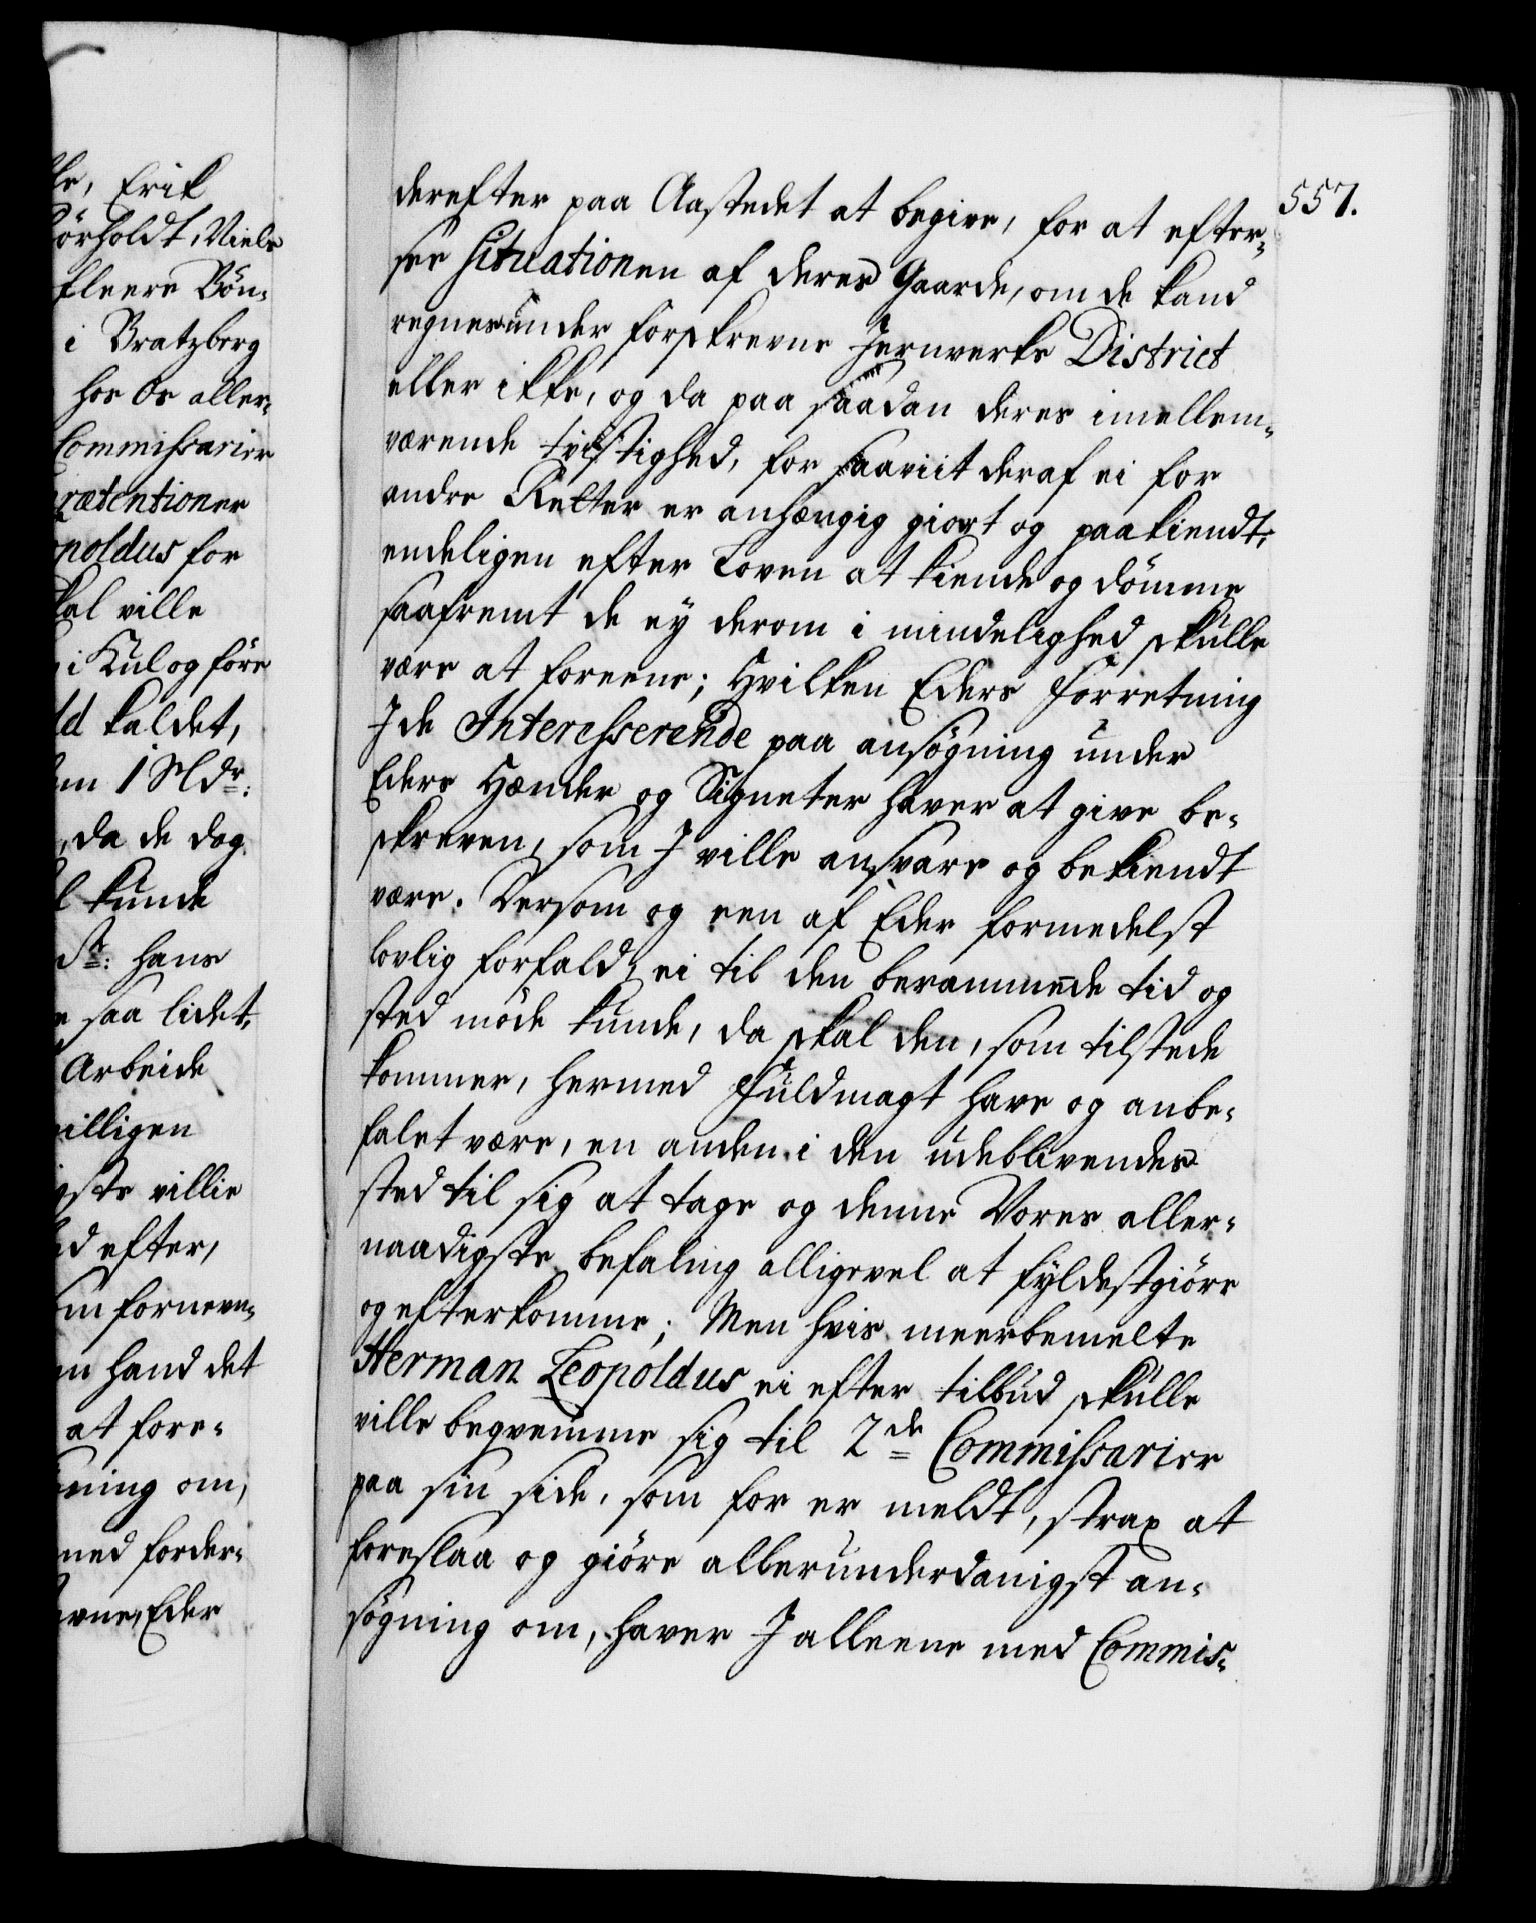 le, Erik
örholdt, Niels
fleere Bön-
i Bratzberg
hos Os aller-
Commissarier
rætentioner
opoldus for
kal ville
i Kul og före
ld kaldet,
em 1 Rdr:
, da de dog
l kunde
dr: hans
e saa lidet,
Arbeide
villigen
igste villie
ed efter,
em fornevn-
en hand det
at fore-
kning om,
med forder-
evne, Eder
557.
derefter paa Aastedet at begive, for at efter-
see situationen af deres Gaarde, om de kand
regnes under forskrevne Jernverks District
eller ikke, og da paa saadan deres imellem-
værende tvistighed, for saaviit deraf ei for
andre Retter er anhængig giort og paakiendt,
endeligen efter Loven at kiende og dömme
saafremt de ey derom i mindelighed skulle
være at foreene; Hvilken Eders Forretning
J de Interesserende paa ansögning under
Eders Hænder og Signeter haver at give be-
skreven, som J ville ansvare og bekiendt
være. Dersom og een af Eder formedelst
lovlig forfald, ei til den berammede tid og
sted möde kunde, da skal den, som tilstede
kommer, hermed Fuldmagt have og anbe-
falet være, en anden i den udeblivendes
sted til sig at tage og denne Vores aller-
naadigste befaling alligevel at fyldestgiöre
og efterkomme; Men hvis meerbemelte
Herman Leopoldus ei efter tilbud skulle
ville beqvemme sig til 2de Commissarier
paa sin side, som for er meldt, strax at
foreslaa og giöre allerunderdanigst an-
sögning om, haver J alleene med Commis-